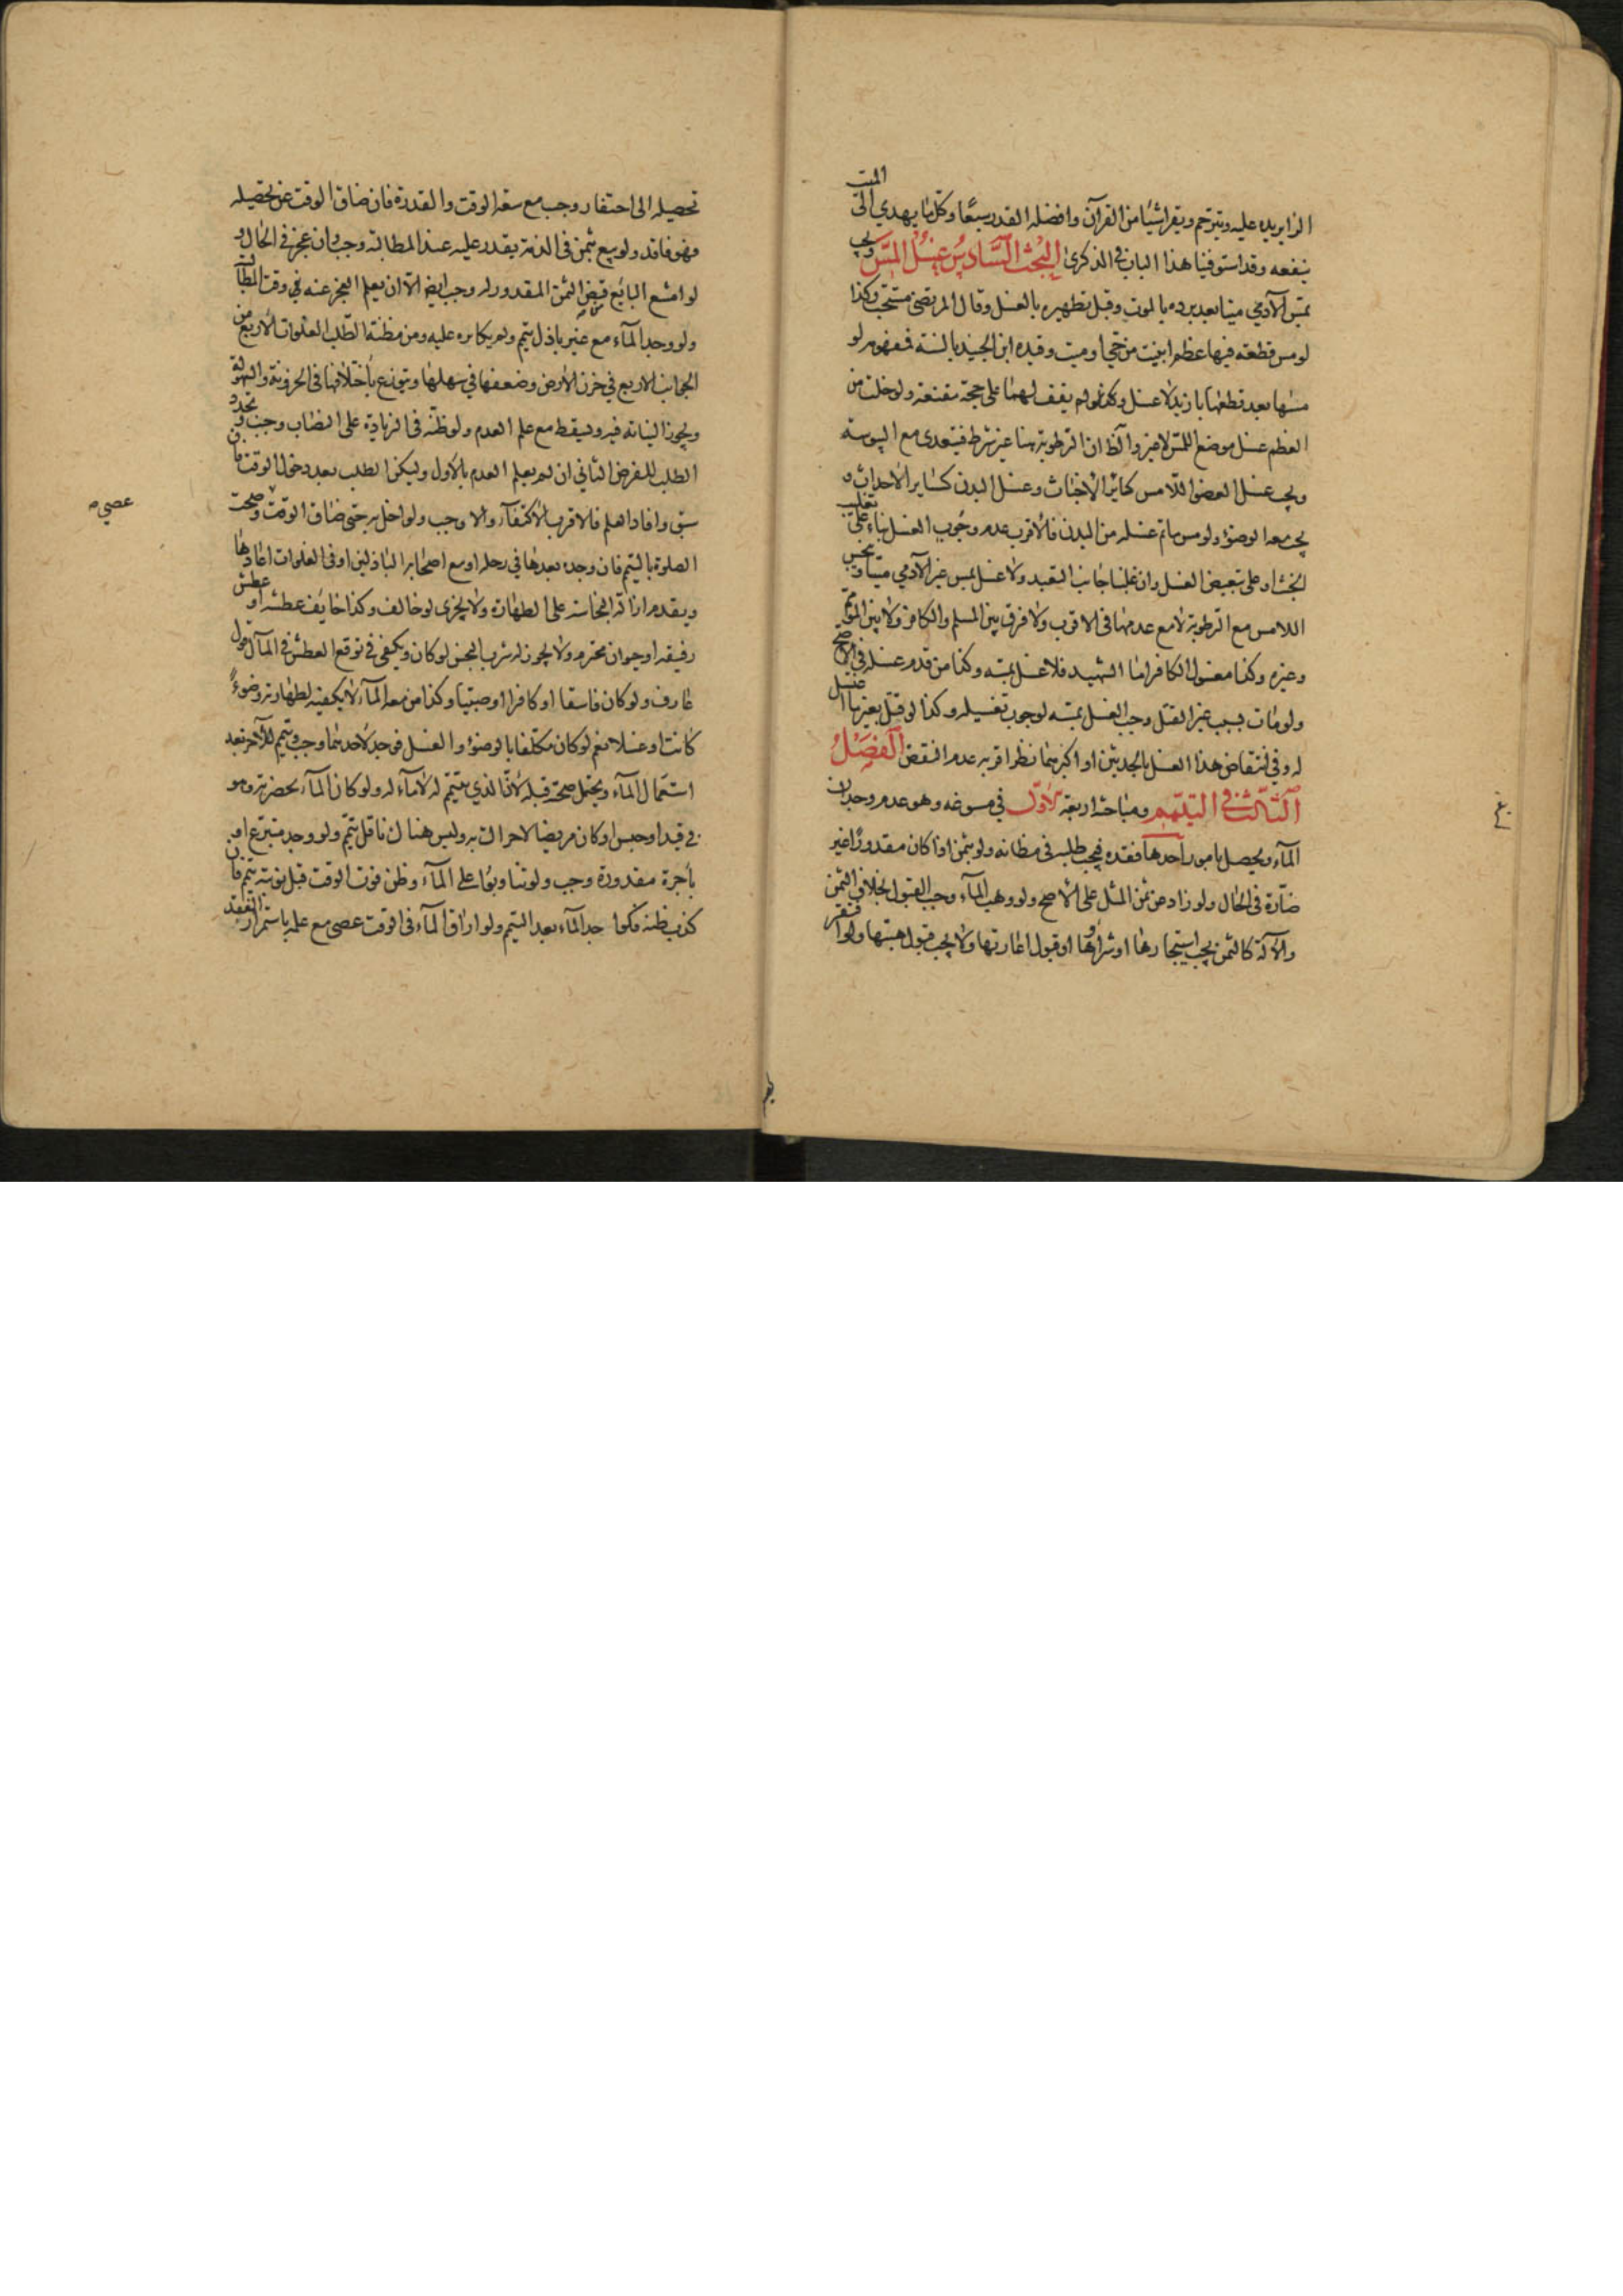 الزاير يده عليه ويترحم ويقرا شيئا من القرآن وافضله القدر سبعا وكل ما يهدي الى الميت
ينفعه وقد استوفينا هذا الباب في الذكرى البحث السادس غسل المس ويجب
بمس الآدمي ميتا بعد برده بالموت وقبل تطهيره بالغسل وقال المرتضى مستحب وكذا
لو مس قطعة فيها عظم ابينت من حي او ميت وقيده ابن الجنيد بالسنة فمفهومه لو
مسها بعد قطعها بازيد لا غسل ولم يقف لهما على حجة مقنعة ولو خلت من
العظم غسل موضع اللمس لا غير والظ ان الرطوبة هنا غير شرط فيتعدى مع اليبوسة
ويجب غسل العضو اللامس كماير الاخباث وغسل البدن كساير الاحداث و
يجب معه الوضوء ولو مس ما تم غسله من البدن فالاقرب عدم وجوب الغسل بناء على تغليب
الخبث او على تبعيض الغسل وان غلبنا جانب التعبد ولا غسل بمس غير الآدمي ميتا وينجس
اللامس مع الرطوبة لا مع عدمها في الاقرب ولا فرق بين المسلم والكافر ولا بين الموتمم
وغيره وكذا مغسول الكافر اما الشهيد فلا غسل بمسه وكذا من قدم غسله في الاصح
ولو مات بسبب غير القتل وجب الغسل بمسه لوجوب تغسيله وكذا لو قتل بغير ما اغتسل
له وفي انتقاض هذا الغسل بالحدثين او اكبرهما نظر اقربه عدم النقض الفصل
الثالث في التيمم ومباحثه اربعة الاول في مسوغه وهو عدم وجدان
الماء ويحصل بامور احدها فقده فيجب طلبه في مظانه ولو بثمن اذا كان مقدورا غير
ضارة في الحال ولو زاد عن ثمن المثل على الاصح ولو وهب الماء وجب القبول بخلاف الثمن
والآلة كالثمن يجب استيجارها او شراؤها او قبول اعارتها ولا يجب قبول هبتها ولو افتقر
تحصيله الى احتفار وجب مع سعة الوقت والقدرة فان ضاق الوقت عن تحصيله
فهو فاقد ولو بيع بثمن في الذمة يقدر عليه عند المطالبة وجب وان عجز في الحال و
لو امتنع البائع قبض الثمن المقدور له وجب ايض الا ان يعلم العجز عنه في وقت المطالبة
ولو وجد الماء مع غير باذل تيمم ولم يكابره عليه ومن مظنة الطلب الغلوات الاربع من
الجوانب الاربع في حزن الارض وضعفها في سهلها ويتوزع باختلافها في الحزونة والسهولة
ويجوز النيابة فيه ويسقط مع علم العدم ولو ظنه في الزيادة على النصاب وجب ويجدد
الطلب للفرض الثاني ان لم يعلم العدم بالاول وليكن الطلب بعد دخول الوقت فان
سبق وافاد العلم فالاقرب الاكتفاء والا وجب ولو اخل به حتى ضاق الوقت وصحت
الصلوة بالتيمم فان وجده بعدها في رحله او مع اصحابه الباذلين او في الغلوات اعادها
ويقدم ازالة النجاسة على الطهارة ولا يجزي لو خالف وكذا خايف عطشه او عطش
رفيقه او حيوان محترم ولا يجوز له شرب النجس لو كان ويكفي في توقع العطش في المآل قول
عارف ولو كان فاسقا او كافرا او صبيا وكذا من معه الماء لا يكفيه لطهارته وضوءا
كانت او غسلا نعم لو كان مكلفا بالوضوء والغسل فوجد لاحدهما وجب وتيمم للآخر بعد
استعمال الماء ويحتمل صحته قبله لان الذي يتيمم له لا ماء له ولو كان الماء بحضرته وهو
في قيد او حبس او كان مريضا لا حراك به وليس هناك ناقل تيمم ولو وجد متبرعا او
بأجرة مقدورة وجب ولو تناوبوا على الماء وظن فوت الوقت قبل نوبته تيمم فان
كذب ظنه فكواجد الماء بعد التيمم ولو اراق الماء في الوقت عصى مع علمه باستمرار الفقد
عصي